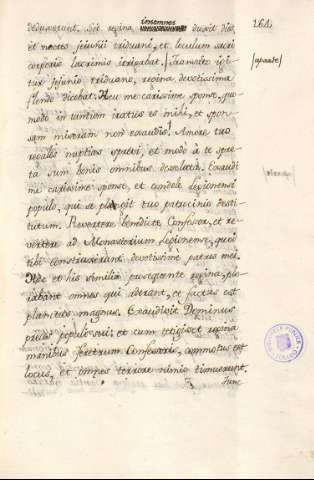 insomnes 264
deduxerunt. Sic regina duxit dies,
et noctes jejunii triduani, et loculum sacri
corporis lacrimis irrigabat. Exacto igi- [aparte]
tur jejunio triduano, regina devotissima
flendo dicebat. Heu me carissime sponse, quo-
modo in tantum iratus es mihi, et spon-
sam miseram non exaudis! Amore tuo
regales nuptias sprevi, et modo à te spre-
ta sum bonis omnibus desolata. Exaudi
me carissime sponse, et condole Legionensi
populo, qui se plangit tuo patrocinio desti-
tutum. Revertere benedicte Confessor, et re-
vertere ad Monasterium Legionense, quod
tibi construxerunt devotissime patres mei.
Hæc et his similia prosequente regina, plo-
rabant omnes qui aderant, et factus est
planctus magnus. Exaudivit Dominus
preces populi sui: et cum tetigisset regina
manibus feretrum Confessoris, commotus est
locus, et omnes terrore nimio timuerunt.
Tunc